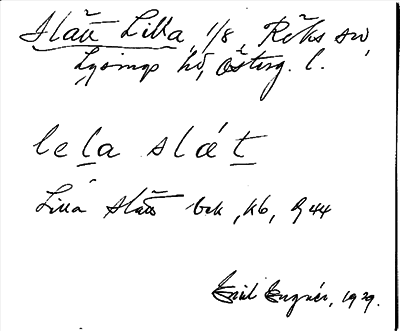 Slätt Lilla, 1/8, Röks sn,
Lysings hd, Österg. l.
le la slá t
Lilla Slätt bek, Kb, G44
Emil Engnér, 1929.